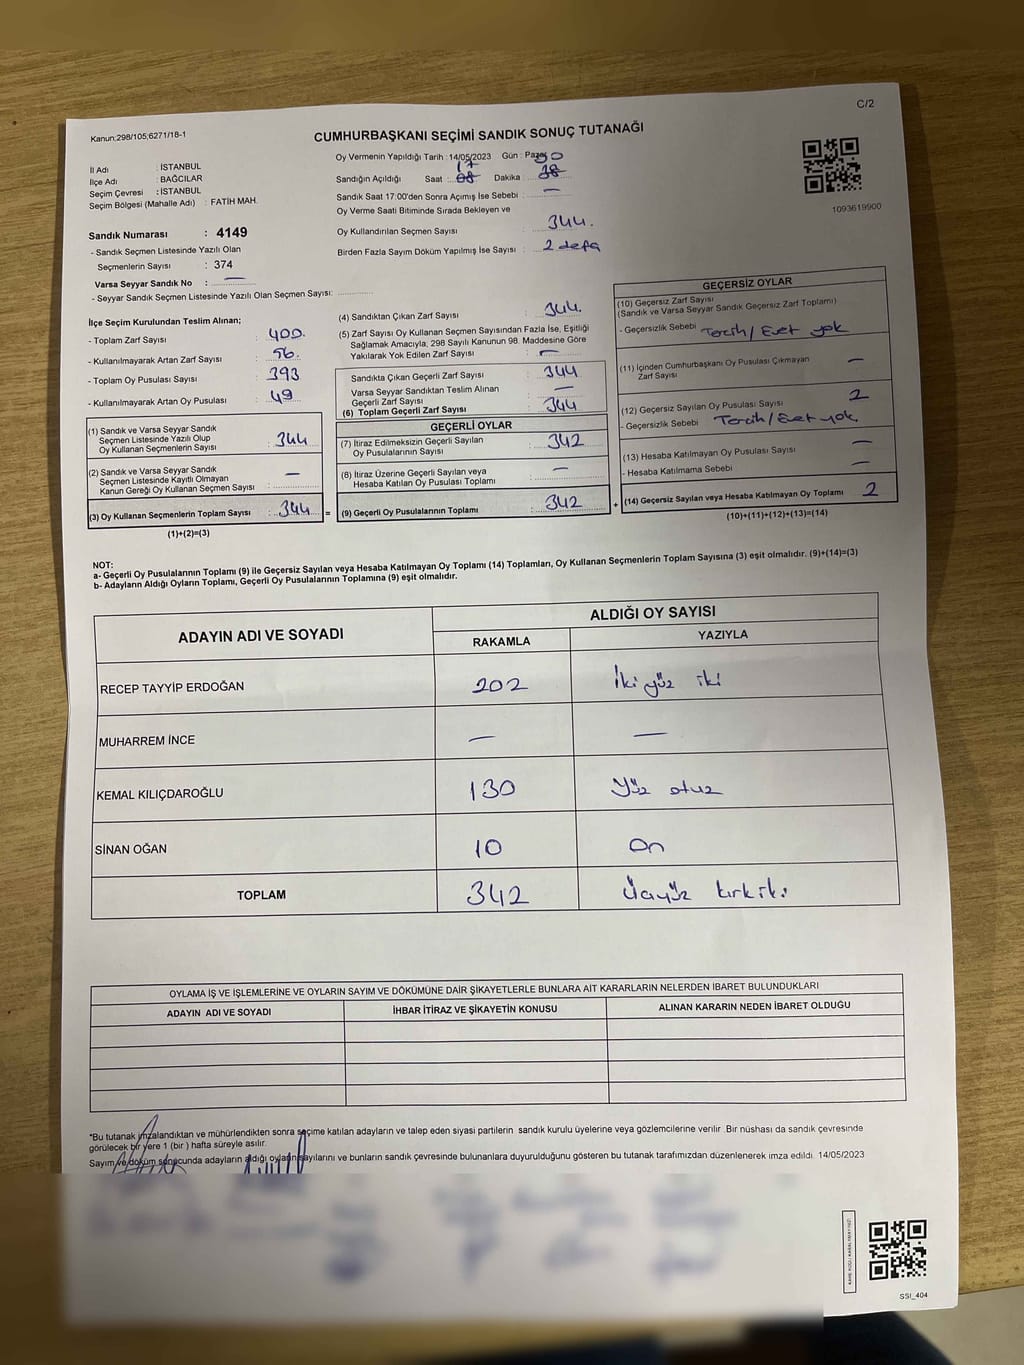 C/2
Kanun:298/105;6271/18-1
CUMHURBAŞKANI SEÇİMİ SANDIK SONUÇ TUTANAĞI
İl Adı : İSTANBUL
İlçe Adı : BAĞCILAR
Seçim Çevresi : İSTANBUL
Seçim Bölgesi (Mahalle Adı) : FATİH MAH.
Sandık Numarası : 4149
- Sandık Seçmen Listesinde Yazılı Olan
Seçmenlerin Sayısı : 374
Varsa Seyyar Sandık No : —
- Seyyar Sandık Seçmen Listesinde Yazılı Olan Seçmen Sayısı:
Oy Vermenin Yapıldığı Tarih : 14/05/2023 Gün : Pazar
Sandığın Açıldığı Saat : 17 Dakika
Sandık Saat 17:00'den Sonra Açımış İse Sebebi : —
Oy Verme Saati Bitiminde Sırada Bekleyen ve
Oy Kullandırılan Seçmen Sayısı : 344.
Birden Fazla Sayım Döküm Yapılmış İse Sayısı : 2 defa
1093619900
İlçe Seçim Kurulundan Teslim Alınan;
- Toplam Zarf Sayısı : 400.
- Kullanılmayarak Artan Zarf Sayısı : 56.
- Toplam Oy Pusulası Sayısı : 393
- Kullanılmayarak Artan Oy Pusulası : 49
(1) Sandık ve Varsa Seyyar Sandık
Seçmen Listesinde Yazılı Olup
Oy Kullanan Seçmenlerin Sayısı : 344
(2) Sandık ve Varsa Seyyar Sandık
Seçmen Listesinde Kayıtlı Olmayan
Kanun Gereği Oy Kullanan Seçmen Sayısı : —
(3) Oy Kullanan Seçmenlerin Toplam Sayısı : 344 =
(1)+(2)=(3)
(4) Sandıktan Çıkan Zarf Sayısı : 344.
(5) Zarf Sayısı Oy Kullanan Seçmen Sayısından Fazla İse, Eşitliği
Sağlamak Amacıyla, 298 Sayılı Kanunun 98. Maddesine Göre
Yakılarak Yok Edilen Zarf Sayısı : —
Sandıkta Çıkan Geçerli Zarf Sayısı : 344
Varsa Seyyar Sandıktan Teslim Alınan
Geçerli Zarf Sayısı : —
(6) Toplam Geçerli Zarf Sayısı : 344
GEÇERLİ OYLAR
(7) İtiraz Edilmeksizin Geçerli Sayılan
Oy Pusulalarının Sayısı : 342
(8) İtiraz Üzerine Geçerli Sayılan veya
Hesaba Katılan Oy Pusulası Toplamı : —
(9) Geçerli Oy Pusulalarının Toplamı : 342 +
GEÇERSİZ OYLAR
(10) Geçersiz Zarf Sayısı
(Sandık ve Varsa Seyyar Sandık Geçersiz Zarf Toplamı)
- Geçersizlik Sebebi Tercih/Evet yok
(11) İçinden Cumhurbaşkanı Oy Pusulası Çıkmayan
Zarf Sayısı —
(12) Geçersiz Sayılan Oy Pusulası Sayısı 2
- Geçersizlik Sebebi Tercih/Evet yok
(13) Hesaba Katılmayan Oy Pusulası Sayısı —
- Hesaba Katılmama Sebebi —
(14) Geçersiz Sayılan veya Hesaba Katılmayan Oy Toplamı 2
(10)+(11)+(12)+(13)=(14)
NOT:
a- Geçerli Oy Pusulalarının Toplamı (9) ile Geçersiz Sayılan veya Hesaba Katılmayan Oy Toplamı (14) Toplamları, Oy Kullanan Seçmenlerin Toplam Sayısına (3) eşit olmalıdır. (9)+(14)=(3)
b- Adayların Aldığı Oyların Toplamı, Geçerli Oy Pusulalarının Toplamına (9) eşit olmalıdır.
ADAYIN ADI VE SOYADI
ALDIĞI OY SAYISI
RAKAMLA YAZIYLA
RECEP TAYYİP ERDOĞAN 202 İki yüz iki
MUHARREM İNCE — —
KEMAL KILIÇDAROĞLU 130 Yüz otuz
SİNAN OĞAN 10 On
TOPLAM 342 Üçyüz kırkiki
OYLAMA İŞ VE İŞLEMLERİNE VE OYLARIN SAYIM VE DÖKÜMÜNE DAİR ŞİKAYETLERLE BUNLARA AİT KARARLARIN NELERDEN İBARET BULUNDUKLARI
ADAYIN ADI VE SOYADI İHBAR İTİRAZ VE ŞİKAYETİN KONUSU ALINAN KARARIN NEDEN İBARET OLDUĞU
*Bu tutanak imzalandıktan ve mühürlendikten sonra seçime katılan adayların ve talep eden siyasi partilerin sandık kurulu üyelerine veya gözlemcilerine verilir .Bir nüshası da sandık çevresinde
görülecek bir yere 1 (bir ) hafta süreyle asılır.
Sayım ve döküm sonucunda adayların aldığı oyların sayılarını ve bunların sandık çevresinde bulunanlara duyurulduğunu gösteren bu tutanak tarafımızdan düzenlenerek imza edildi. 14/05/2023
SSI_404